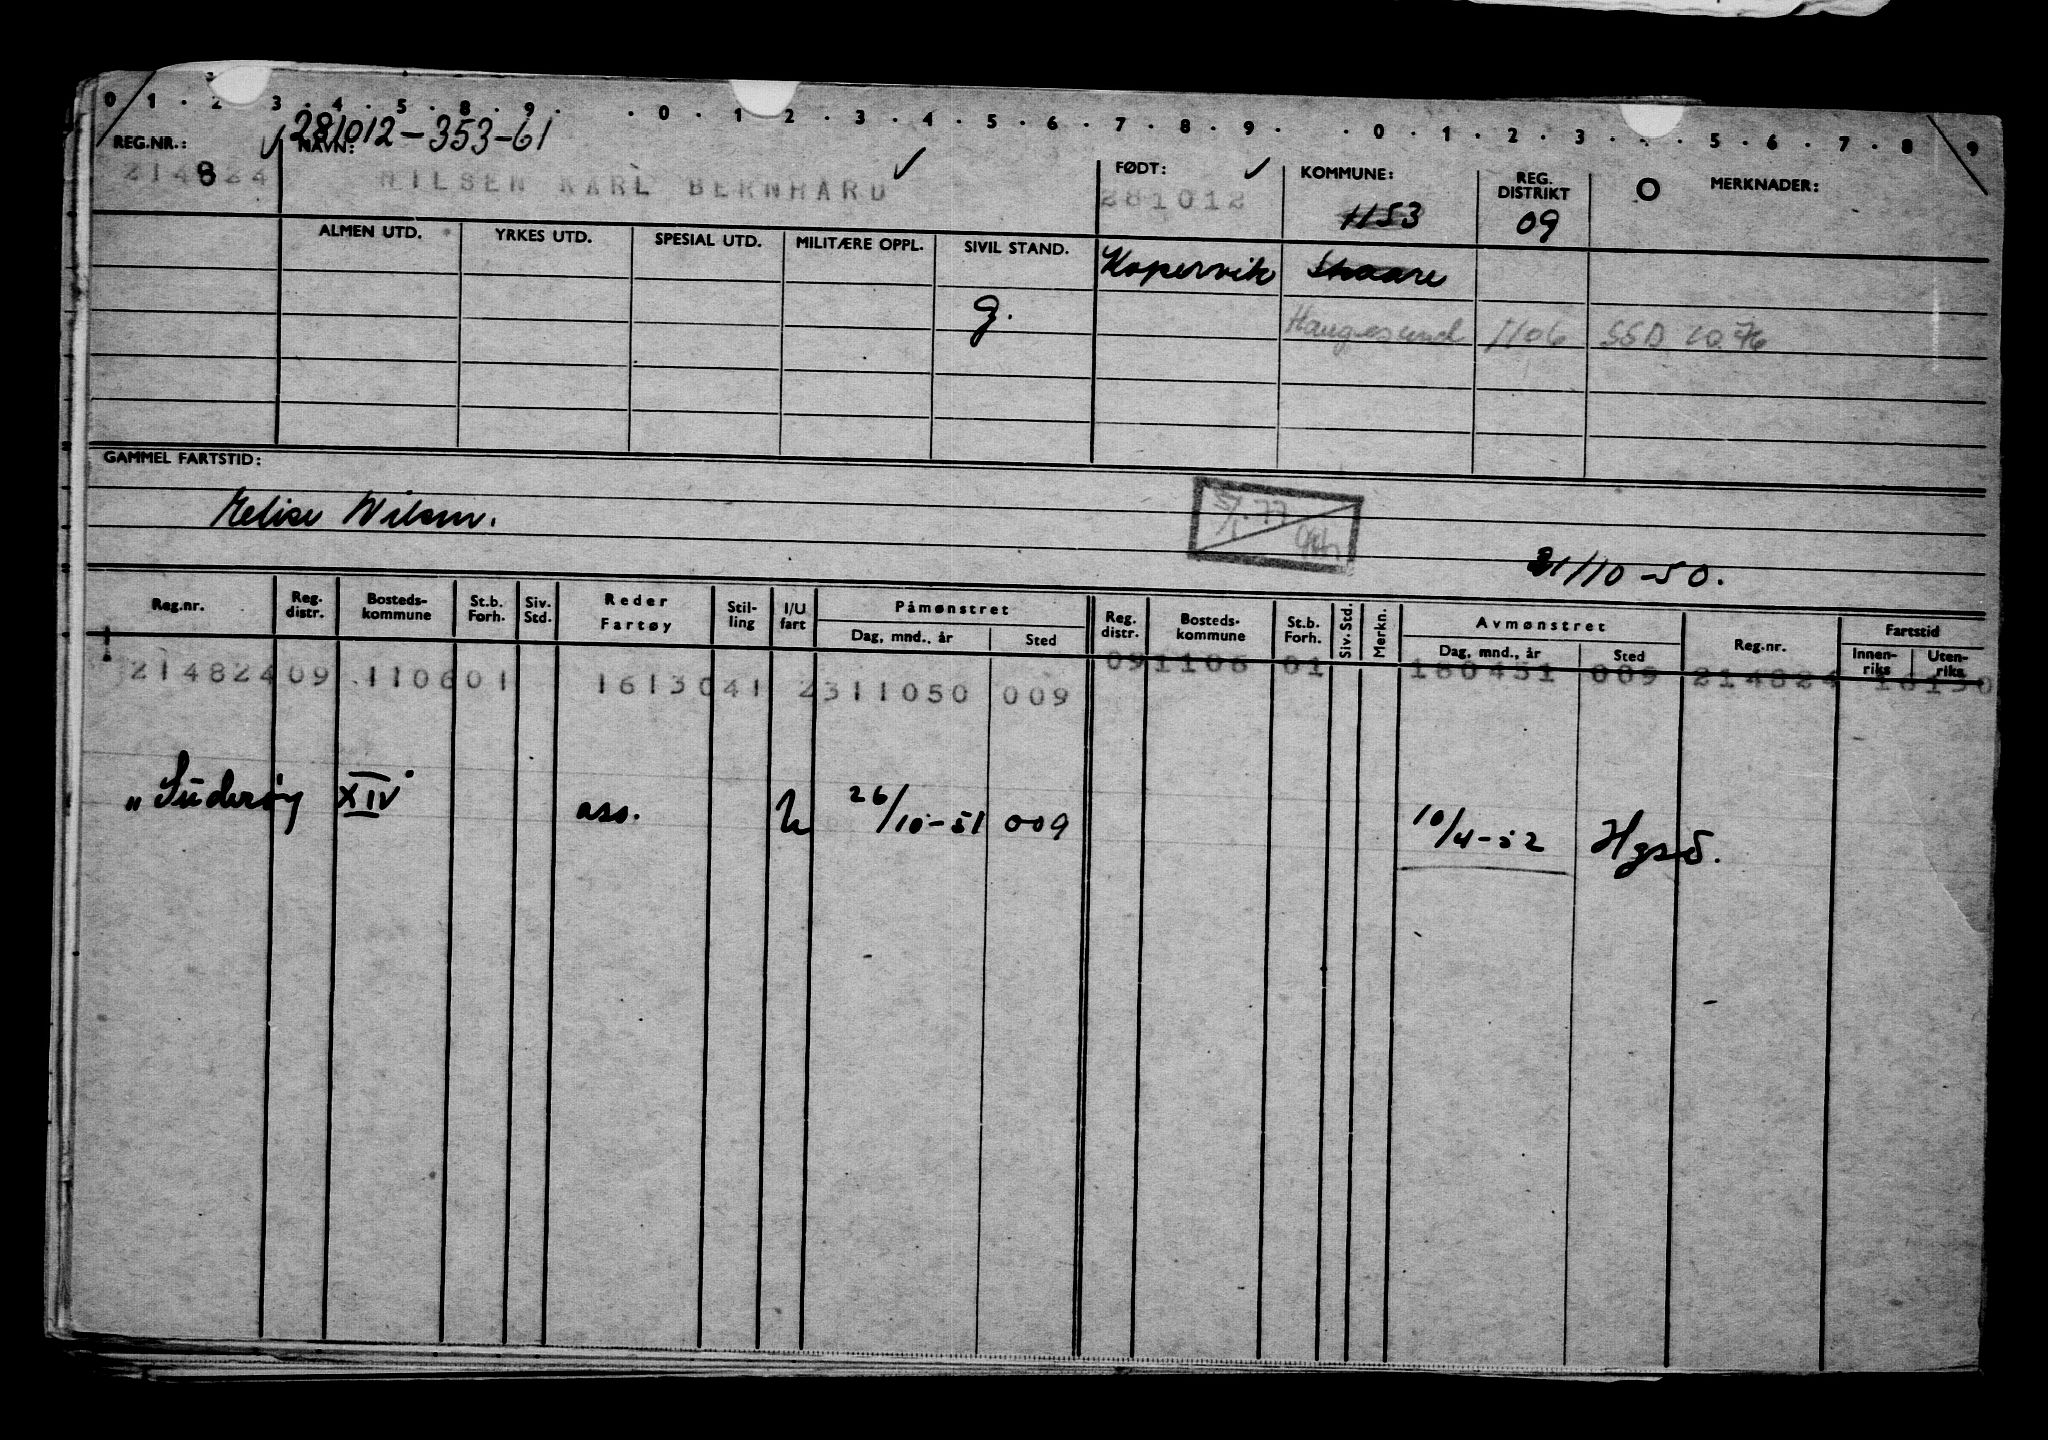 0 . 1 . 2 3 . 4 . 5 . 8 . 9 . . 0 . 1 2 . 3 . 4 . 5 . 6 . 7 . 8 . 9 . . 0 . 1 . 2 . 3 . 5 . 6 . 7 . 8 9
281012-353-61
REG.NR.: NAVN: FØDT: KOMMUNE: REG. DISTRIKT MERKNADER:
214824 8 NILSEN KARL BERNHARD 281012 1153 09
ALMEN UTD. YRKES UTD. SPESIAL UTD. MILITÆRE OPPL. SIVIL STAND.
Kopervik Skaare
g. Haugesund 1106 SSD 10.76
GAMMEL FARTSTID:
31/10-50.
Reg.nr. Reg. distr. Bosteds-kommune St.b. Forh. Siv. Std. Reder Fartøy Stil-ling I/U fart Påmønstret Dag, mnd., år Sted Reg. distr. Bosteds-kommune St.b. Forh. Siv. Std. Merkn. Avmønstret Dag, mnd., år Sted Reg.nr. Fartstid Innen-riks Uten-riks
214824 09 1106 01 16130 41 2 311050 009 09 1106 01 180451 009 214824 16130
"Suderøy XIV ass. U 26/10-51 009 10/4-52 Hgsd.